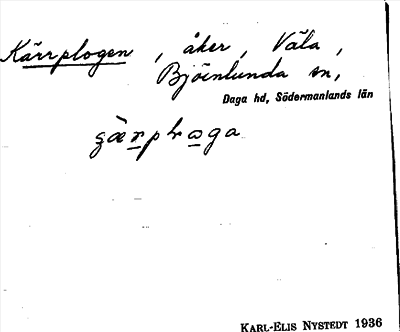 Kärrplogen, åker, Väla,
Björnlunda sn,
Daga hd, Södermanlands län
KARL-ELIS NYSTEDT 1936